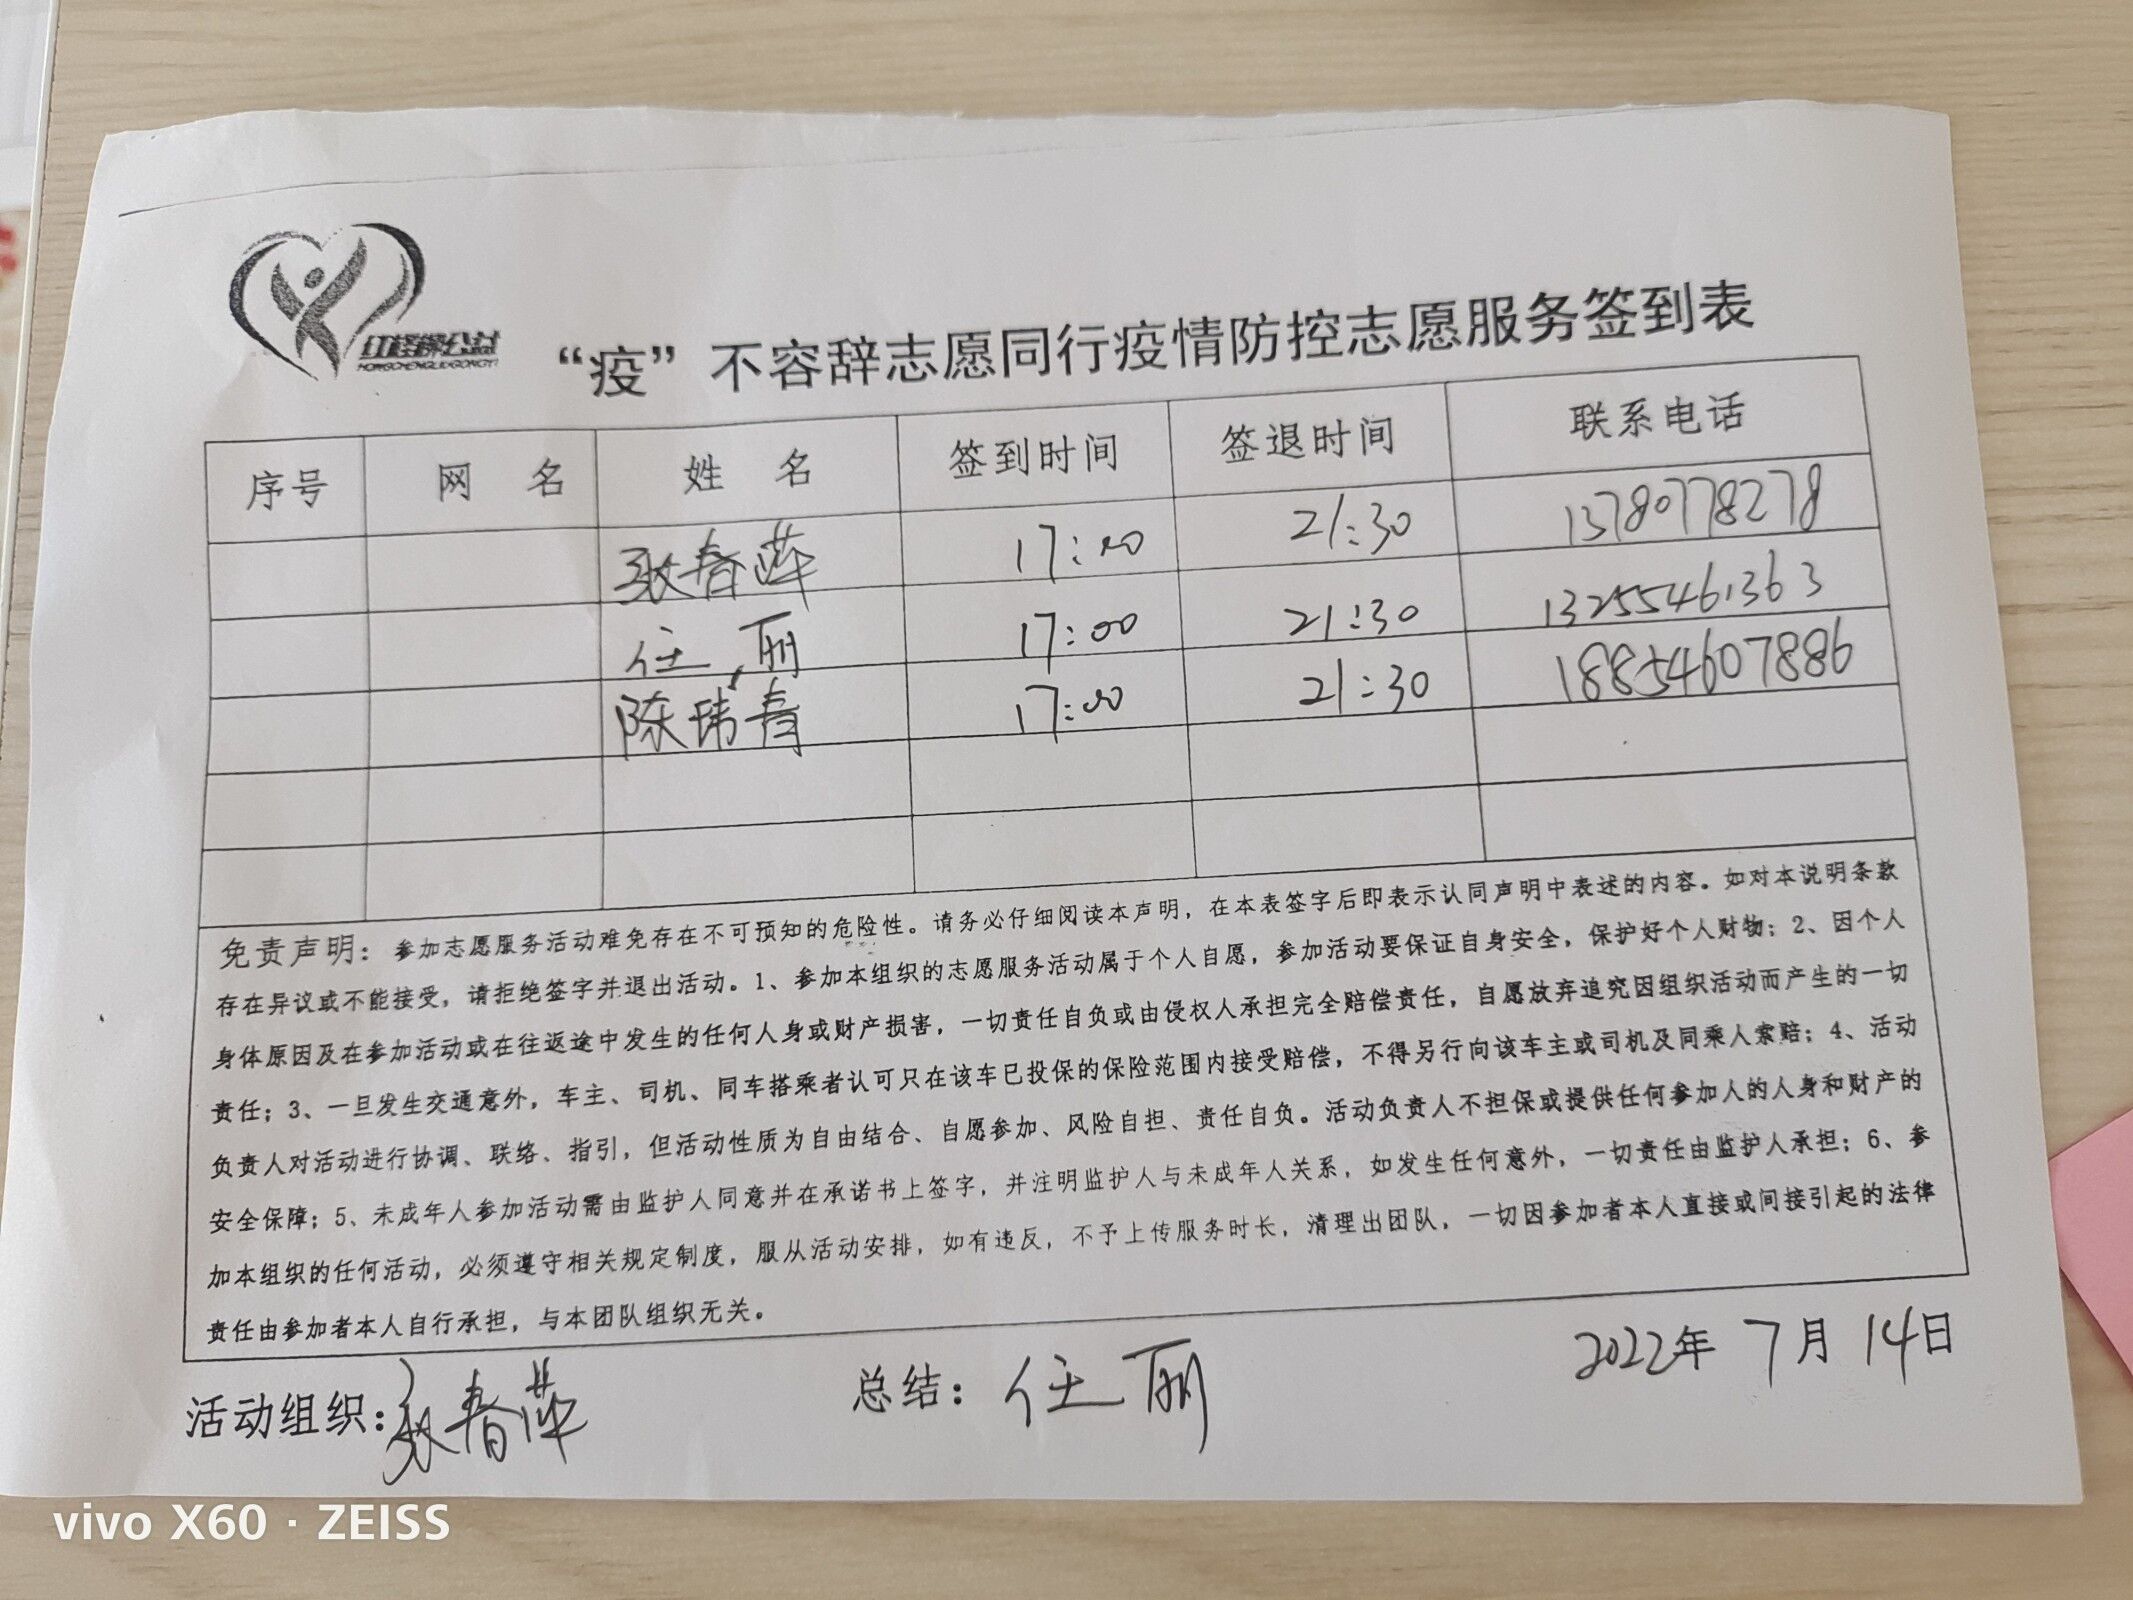 红橙绿公益
HONGCHENGLVGONGYI
“疫”不容辞志愿同行疫情防控志愿服务签到表
序号 网 名 姓 名 签到时间 签退时间 联系电话
耿春萍 17:00 21:30 13780778278
任丽 17:00 21:30 13255461363
陈玮青 17:00 21:30 18854607886
免责声明：参加志愿服务活动难免存在不可预知的危险性。请务必仔细阅读本声明，在本表签字后即表示认同声明中表述的内容。如对本说明条款
存在异议或不能接受，请拒绝签字并退出活动。1、参加本组织的志愿服务活动属于个人自愿，参加活动要保证自身安全，保护好个人财物；2、因个人
身体原因及在参加活动或在往返途中发生的任何人身或财产损害，一切责任自负或由侵权人承担完全赔偿责任，自愿放弃追究因组织活动而产生的一切
责任；3、一旦发生交通意外，车主、司机、同车搭乘者认可只在该车已投保的保险范围内接受赔偿，不得另行向该车主或司机及同乘人索赔；4、活动
负责人对活动进行协调、联络、指引，但活动性质为自由结合、自愿参加、风险自担、责任自负。活动负责人不担保或提供任何参加人的人身和财产的
安全保障；5、未成年人参加活动需由监护人同意并在承诺书上签字，并注明监护人与未成年人关系，如发生任何意外，一切责任由监护人承担；6、参
加本组织的任何活动，必须遵守相关规定制度，服从活动安排，如有违反，不予上传服务时长，清理出团队，一切因参加者本人直接或间接引起的法律
责任由参加者本人自行承担，与本团队组织无关。
活动组织：耿春萍 总结：任丽 2022年 7月 14日
vivo X60 · ZEISS